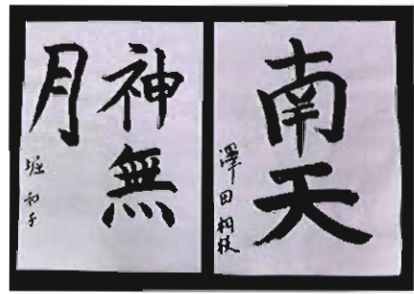 南天
澤田
神無
月
堀和子